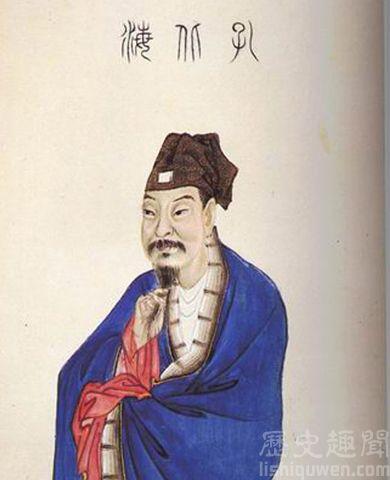 孔北海
歷史趣聞
lishiquwen.com